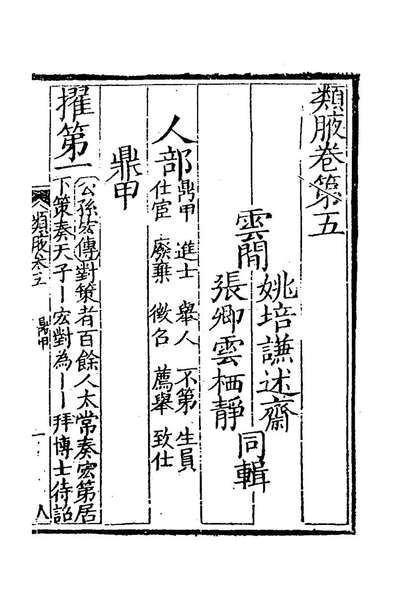 類腋卷第五
雲閒
姚培謙述齋
張卿雲栖靜
同輯
人部
鼎甲 進士 舉人 不第 生員
仕宦 廢棄 徵召 薦舉 致仕
鼎甲
擢第一
公孫宏傳對策者百餘人太常奏宏第居
下策奏天子丨宏對為丨丨拜博士待詔
類腋卷五 鼎甲 一 人